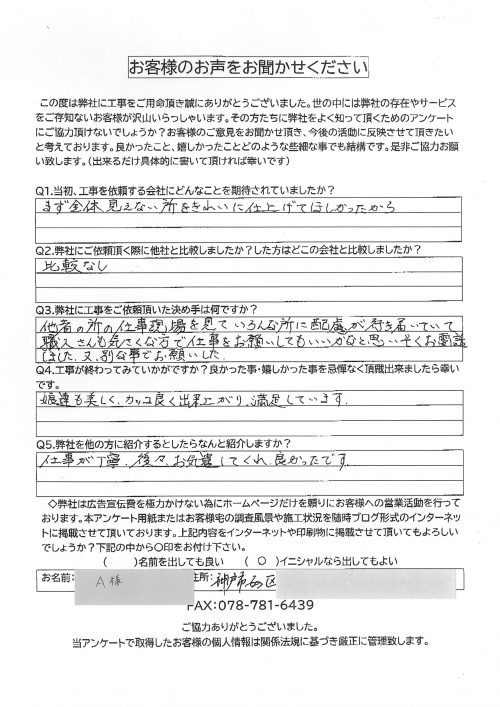 お客様のお声をお聞かせください
この度は弊社に工事をご用命頂き誠にありがとうございました。世の中には弊社の存在やサービス
をご存知ないお客様が沢山いらっしゃいます。その方たちに弊社をよく知って頂くためのアンケート
にご協力頂けないでしょうか?お客様のご意見をお聞かせ頂き、今後の活動に反映させて頂きたい
と考えております。良かったこと、嬉しかったことどのような些細な事でも結構です。是非ご協力お願
い致します。(出来るだけ具体的に書いて頂ければ幸いです)
Q1.当初、工事を依頼する会社にどんなことを期待されていましたか?
まず全体、見えない所をきれいに仕上げてほしかったから
Q2.弊社にご依頼頂く際に他社と比較しましたか?した方はどこの会社と比較しましたか?
比較なし
Q3.弊社に工事をご依頼頂いた決め手は何ですか?
他者の所の仕事現場を見ていろんな所に配慮が行き届いていて
職人さんも気さくな方で仕事をお願いしてもいいかなと思いそくお電話
しました。又、別な事でお願いした
Q4.工事が終わってみていかがですか?良かった事・嬉しかった事を忌憚なく頂戴出来ましたら幸い
です。
娘達も美しく、カッコ良く出来上がり、満足しています。
Q5.弊社を他の方に紹介するとしたらなんと紹介しますか?
仕事が丁寧、後々、お気遣してくれ、良かったです
◇弊社は広告宣伝費を極力かけない為にホームページだけを頼りにお客様への営業活動を行って
おります。本アンケート用紙またはお客様宅の調査風景や施工状況を随時ブログ形式のインターネッ
トに掲載させて頂いております。上記内容をインターネットや印刷物に掲載させて頂いてもよろしい
でしょうか?下記の中から〇印をお付け下さい。
( )名前を出しても良い ( ○ )イニシャルなら出してもよい
お名前: A様 住所: 神戸市西区
FAX:078-781-6439
ご協力ありがとうございました。
当アンケートで取得したお客様の個人情報は関係法規に基づき厳正に管理致します。